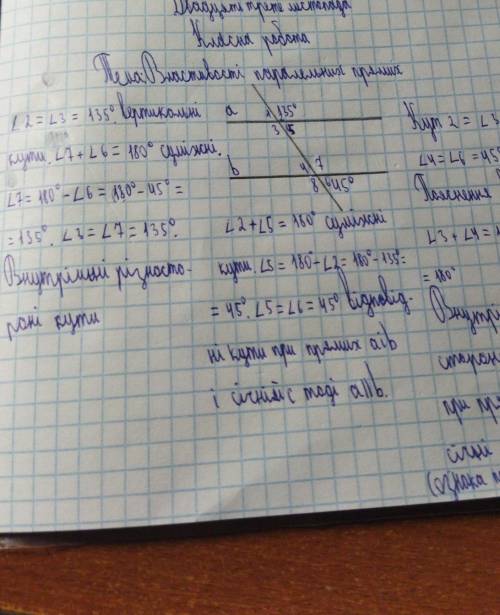 Двадцять третє листопада
Класна робота
Тема: Властивості паралельних прямих
∠2 = ∠3 = 135°. вертикальні
кути. ∠7 + ∠6 = 180° суміжні.
∠7 = 180° - ∠6 = 180° - 45° =
= 135°. ∠3 = ∠7 = 135°.
Внутрішні різносто-
роні кути
a 2 135°
3 5
b 4 7
8 6 45°
∠2 + ∠5 = 180° суміжні
кути. ∠5 = 180° - ∠2 = 180° - 135° =
= 45°. ∠5 = ∠6 = 45° відповід-
ні кути при прямих a і b
і січній c тоді a||b.
Кут 2 = ∠3
∠4 = ∠6 = 45°
Пояснення
∠3 + ∠4 =
= 180°
Внутрі
сторон
при пря
січні
(ознака п